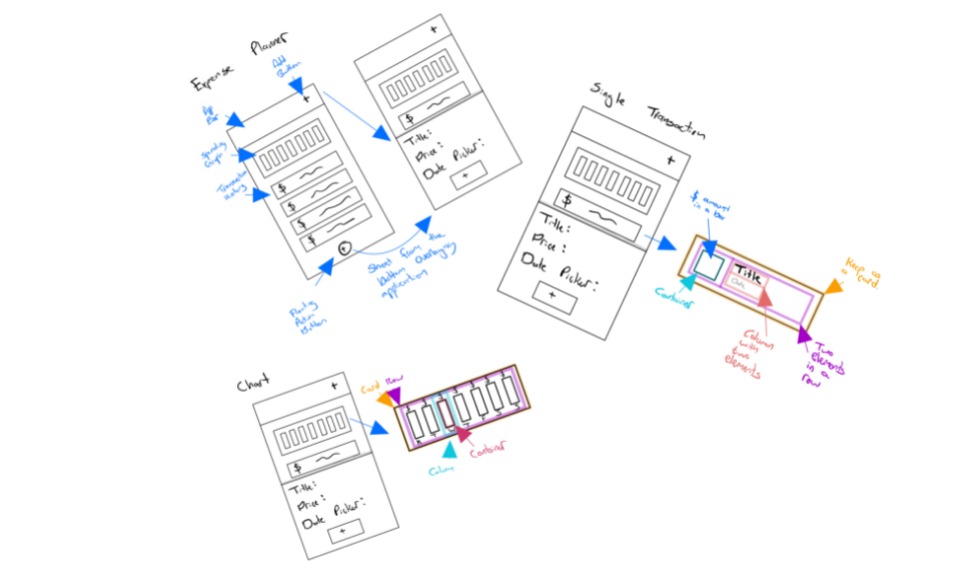 Expense Planner
Add
Button
+
App
Bar
Spending
Graph
Transaction
$
$
$
$
+
Floating
Action
Button
Sheet from the
bottom overlaying
application
+
$
Title:
Price:
Date Picker:
+
Single Transaction
+
$
Title:
Price:
Date Picker:
+
$ amount
in a box
Title
Date
Container
Column
with
two
elements
Keep as
a card.
Two
elements
in a
row
Chart
+
$
Title:
Price:
Date Picker:
+
Card
Row
Column
Container